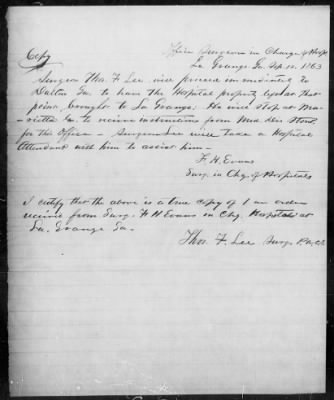 Copy
Office Surgeon in Charge of Hosps
La Grange Ga. 12, 1863
Surgeon Thos. F. Lee will proceed immediately to
Dalton Ga. to have the Hospital property left at that
point, brought to La Grange. He will stop at Ma-
rietta Ga. to receive instructions from Med. Dir. Stout
for the Office - Surgeon Lee will take a Hospital
Attendant with him to assist him -
F. H. Evans
Surg. in Chg. of Hospitals
I certify that the above is a true copy of an order
received from Surg. F H Evans in Chg. Hospitals at
La. Grange Ga.
Thos. F. Lee Surg. P.A.C.S.